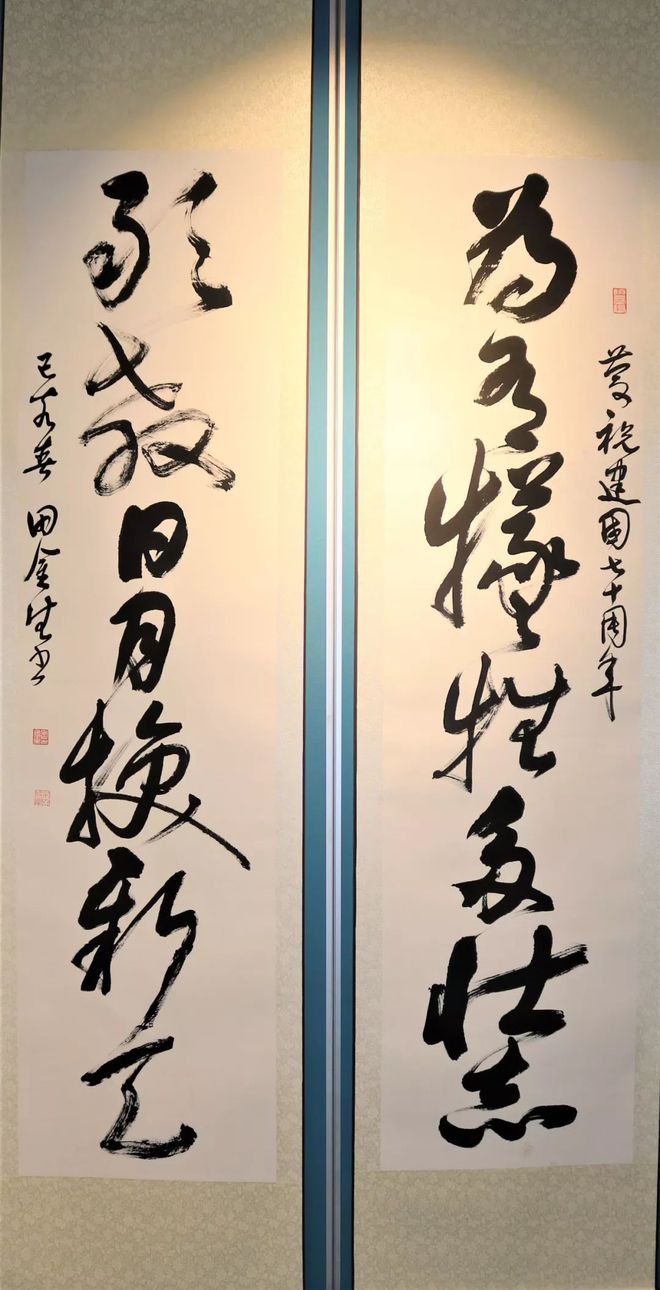 慶祝建国七十周年
为有犧牲多壮志
敢教日月换新天
己亥春 田金生书